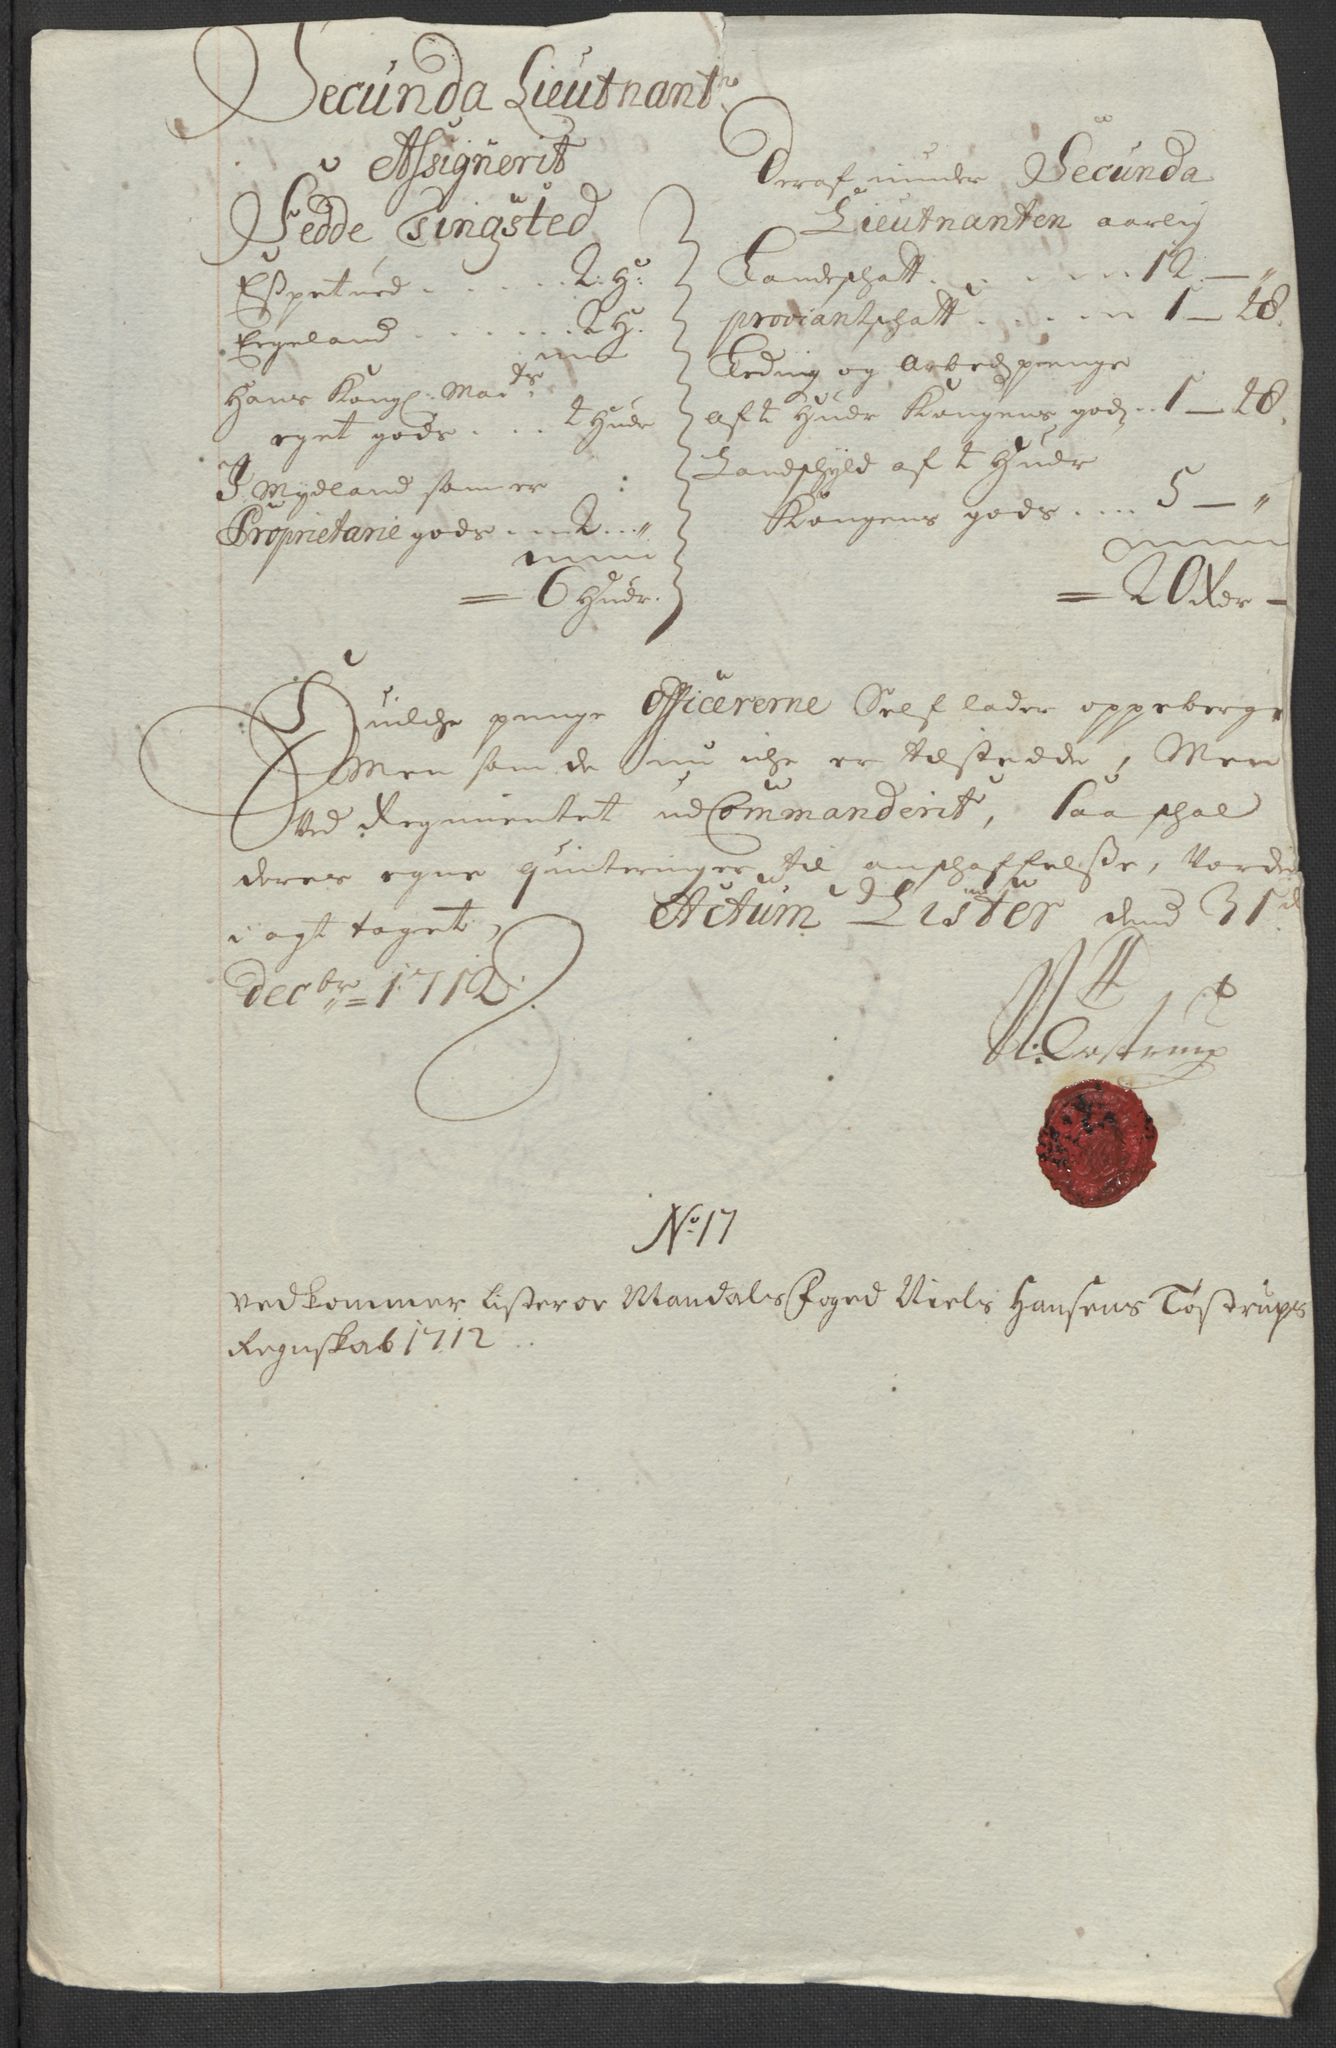 Secunda Lieutnantr
Assignerit
Fedde Tingsted
Espetued . . . . . 2: H:
Ergeland . . . . . . 2 H:
Hans Kongl: Maits
eget gods . . . 4 Huder
I Mydland som er
Proprietarie gods . . . 2 . . "
= 6 Huder.
Deraf nyder Secunda
Lieutnanten aarlig
Landschatt . . . . . . 12 — "
proviantschatt . . . . . 1 — 28.
Leding og Arbedspenge
af 4 Huder Kongens gods . . 1 — 28.
Landschyld af 4 Huder
Kongens gods . . . . 5 — "
= 20 Rdr —
Huilche penge Officererne Self lader oppeberge
Men som de nu iche er tilstedde, Men
Ved Regimentet udCommanderit, saa schal
deres egne quiteringer til anschaffelsse, Vorde
i agt taget, Actum Lister dend 31d
decbr = 1712
N: Tostrup
No: 17
Vedkommer Lister oc Mandals Foged Niels Hansens Tostrups
Regnskab 1712